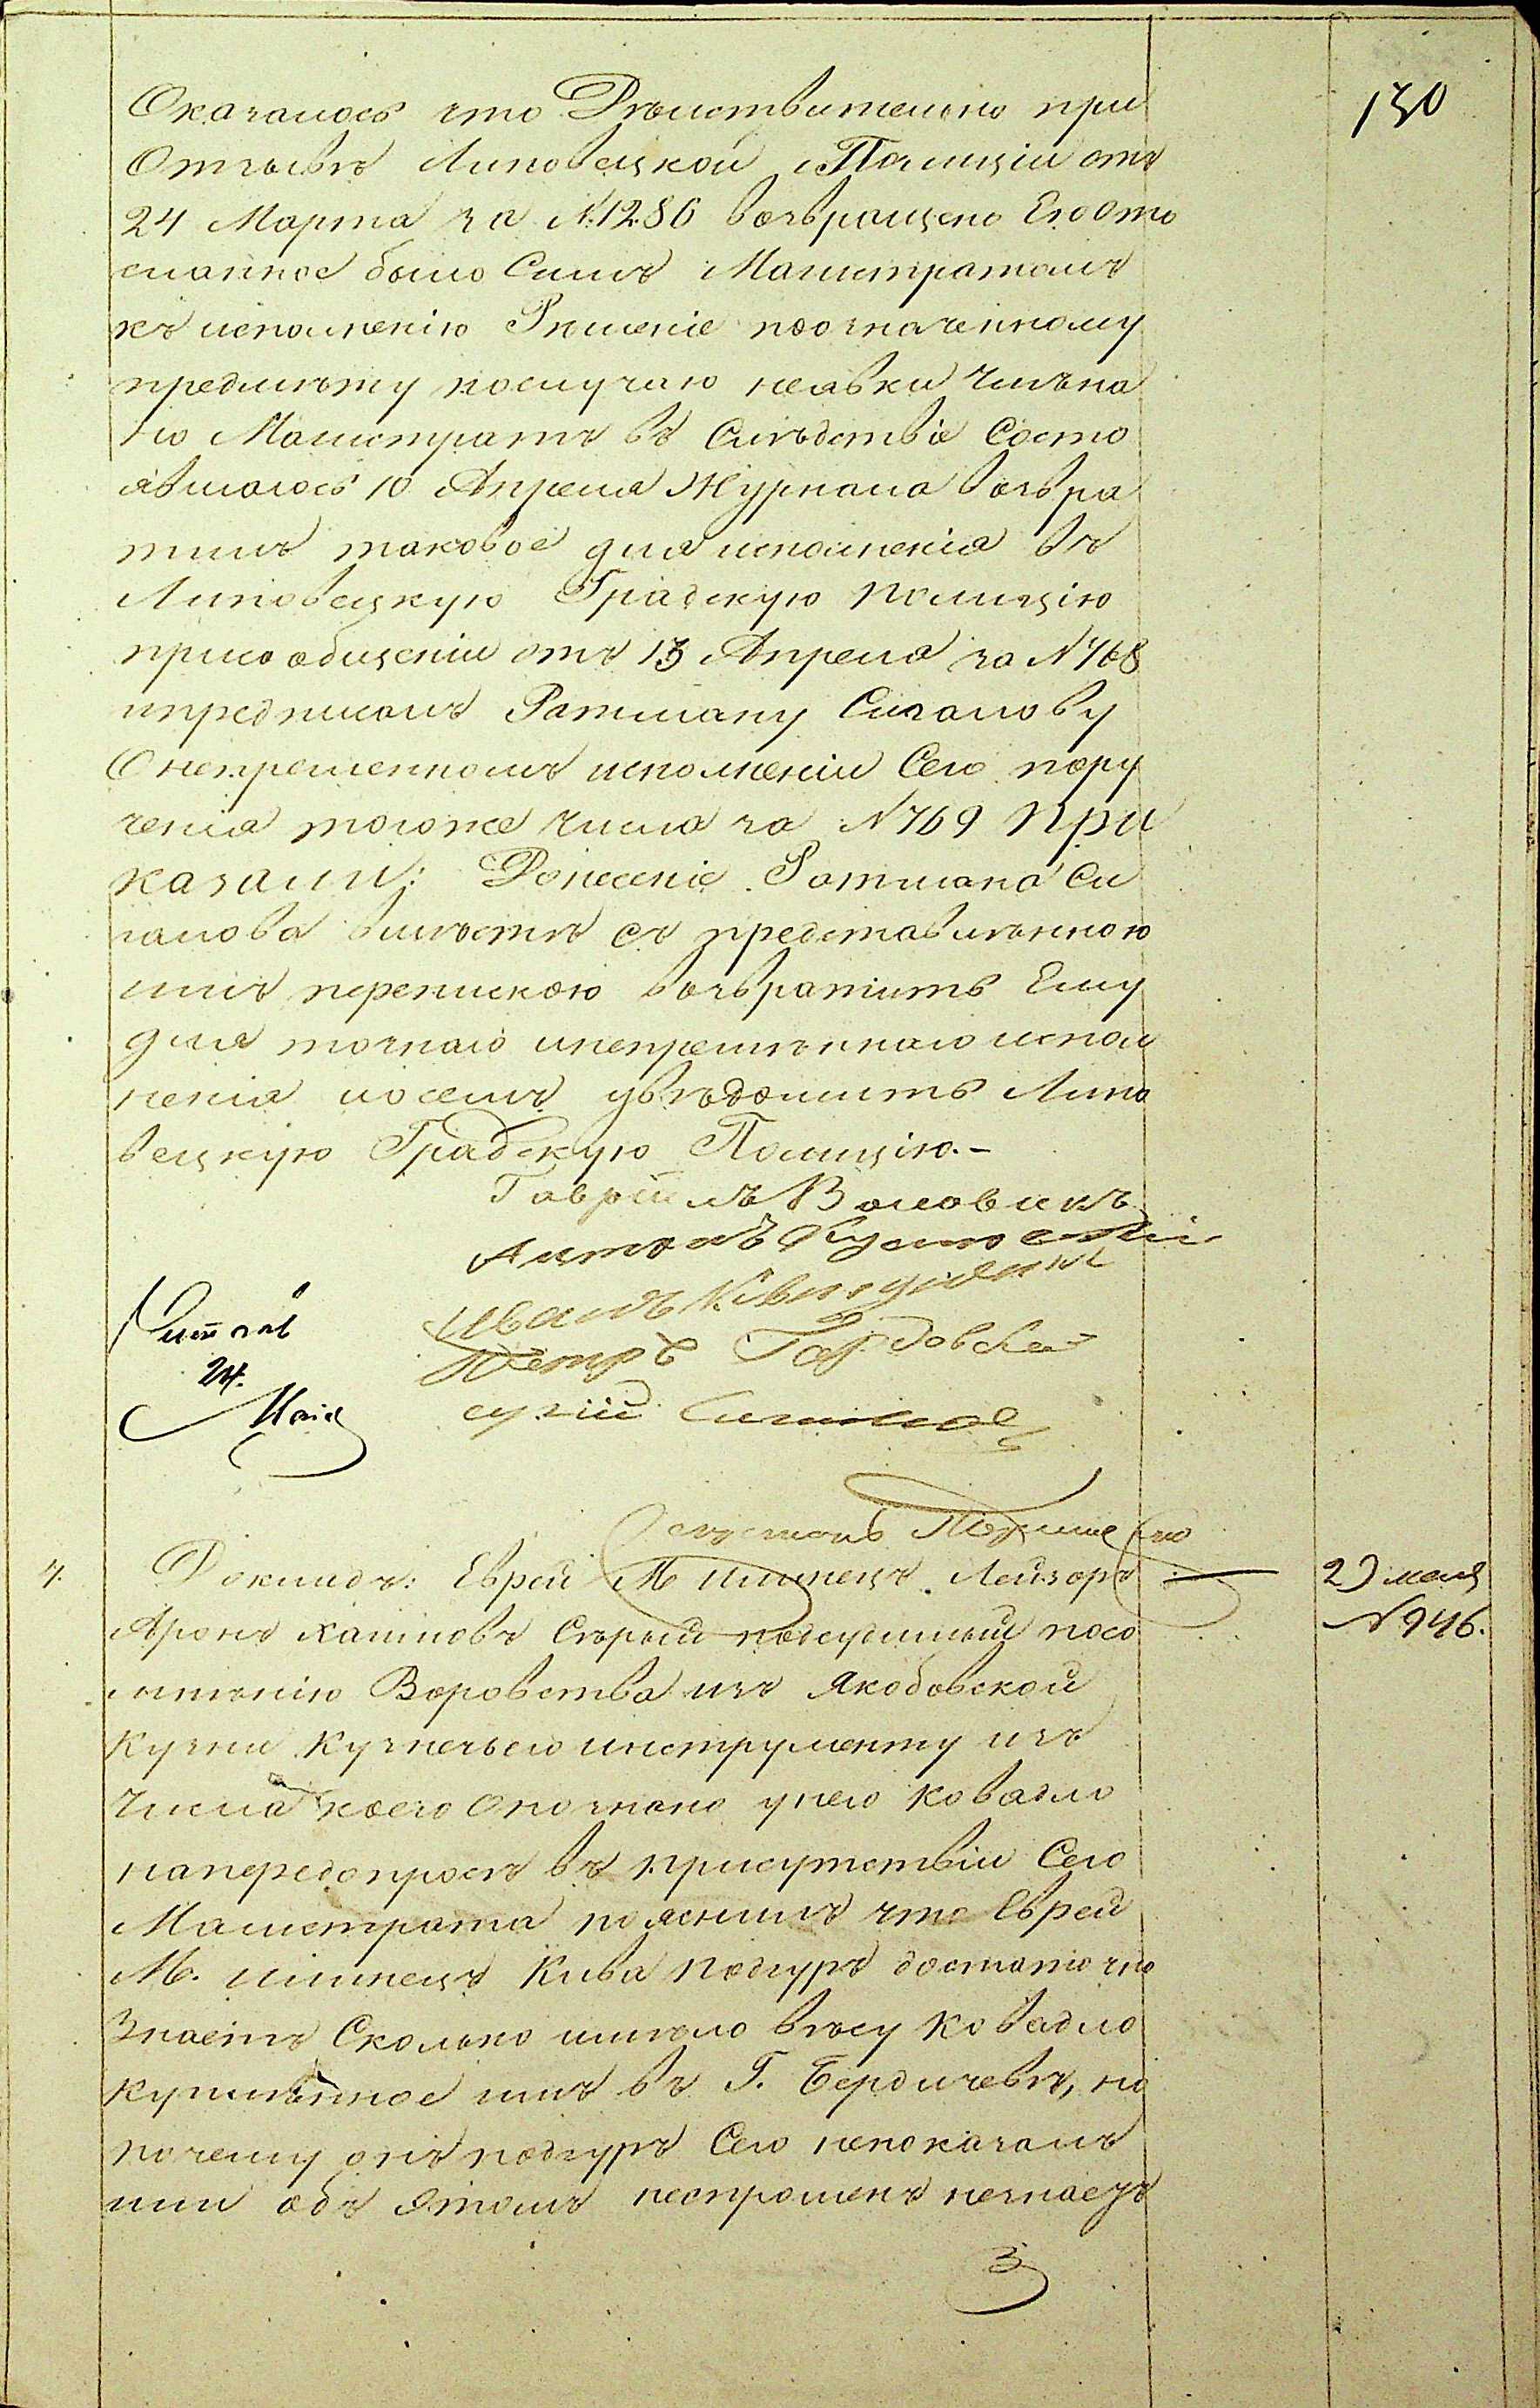 130
Оказалось что Дѣиствительно при
Отзывѣ Липовецкой Полиціи отъ
24 Марта за №1286 возвращено Ею ото
сланное было Симъ Магистратомъ
къ исполненію Рѣшеніе поозначенному
предмѣту послучаю неявки Члѣна
но Магистратъ въ Слѣдствіе Состо
явшагось 10 Апреля Журнала возвра
тилъ таковое для исполненія въ
Липовецкую Градскую полицію
присообщеніи отъ 13 Апреля за №768
ипредписалъ Ратману Сигалову
Онепременномъ исполненіи Сего пору
ченія тогоже числа за №769 При
казали: Донесеніе Ратмана Си
галова вмѣстѣ съ представлѣнною
имъ перепискою возвратить Ему
для точнаго инепремѣннаго испол
ненія иосемъ увѣдомить Липо
вецкую Градскую Полицію.-
Гавріилъ Воловикъ
Антонъ
Иванъ
Петръ
Читалъ
24.
Маія
4. Докладъ: Еврей Мѣщанецъ Лейзоръ
29 мая
№946.
Аронъ Хаимовъ Сѣрый подсудимый посо
мнѣнію Воровства изъ Якобовской
Кузни Кузнечьего инструменту изъ
Числа коего Опознано унего Ковадло
напередопросѣ въ присутствіи Сего
Магистрата пояснилъ что Еврей
Кива Подгуръ достаточно
Знаетъ Сколько имѣло вѣсу Ковадло
купленное имъ въ Г. Бердичевѣ, но
почему онъ подгуръ Сего непоказалъ
или объ Этомъ неспрошенъ незнаетъ